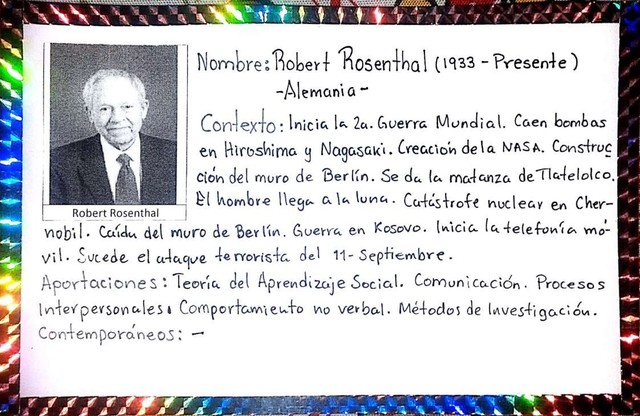 Nombre: Robert Rosenthal (1933 - Presente)
- Alemania -
Contexto: Inicia la 2a. Guerra Mundial. Caen bombas
en Hiroshima y Nagasaki. Creación de la NASA. Construc
ción del muro de Berlín. Se da la matanza de Tlatelolco.
El hombre llega a la luna. Catástrofe nuclear en Cher-
Robert Rosenthal
nobil. Caída del muro de Berlín. Guerra en Kosovo. Inicia la telefonía mó-
vil. Sucede el ataque terrorista del 11-Septiembre.
Aportaciones: Teoría del Aprendizaje Social. Comunicación. Procesos
Interpersonales. Comportamiento no verbal. Métodos de Investigación.
Contemporáneos: -